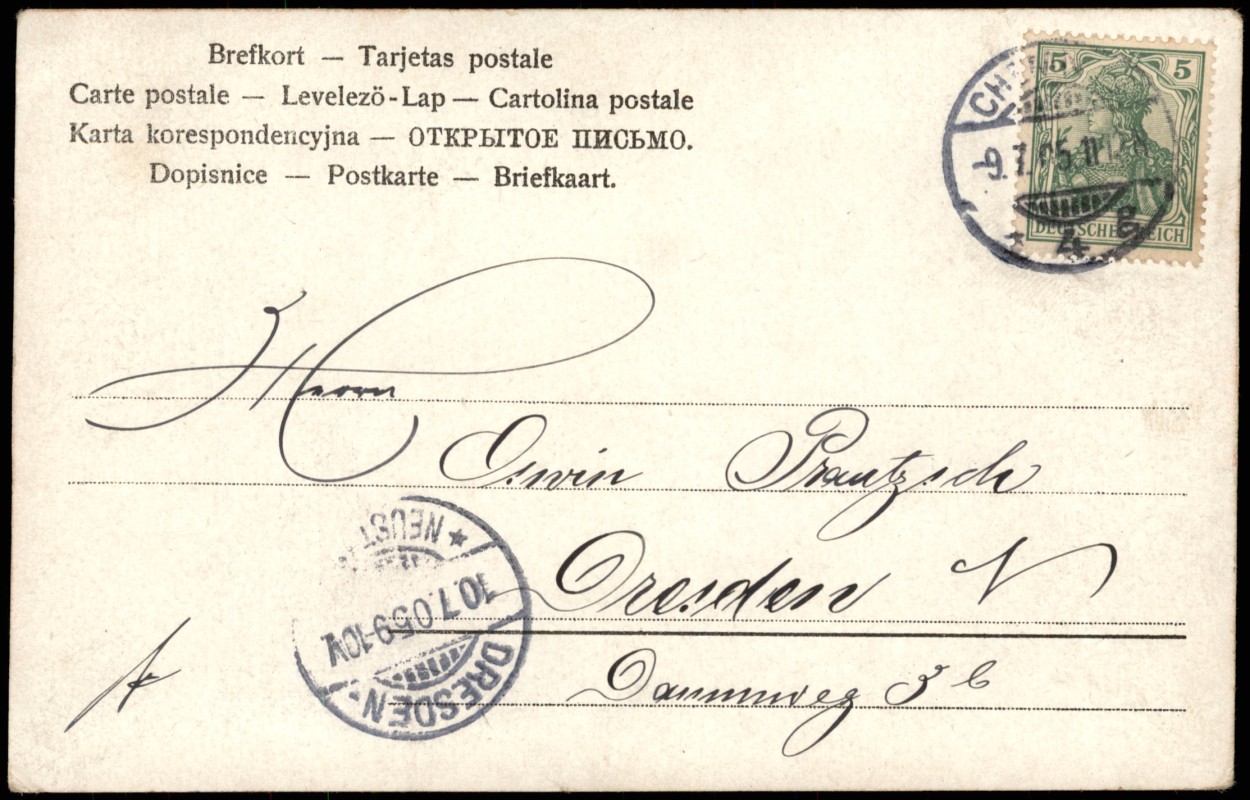 Brefkort — Tarjetas postale
Carte postale — Levelezö-Lap — Cartolina postale
Karta korespondencyjna — ОТКРЫТОЕ ПИСЬМО.
Dopisnice — Postkarte — Briefkaart.
5 5
DEUTSCHES REICH
-9.7.05.11-12
* 4 g
Herrn
Oswin Prautzsch
Dresden N
Dammweg 3 b
fr
* NEUST
10.7.05.9-10V.
DRESDEN-